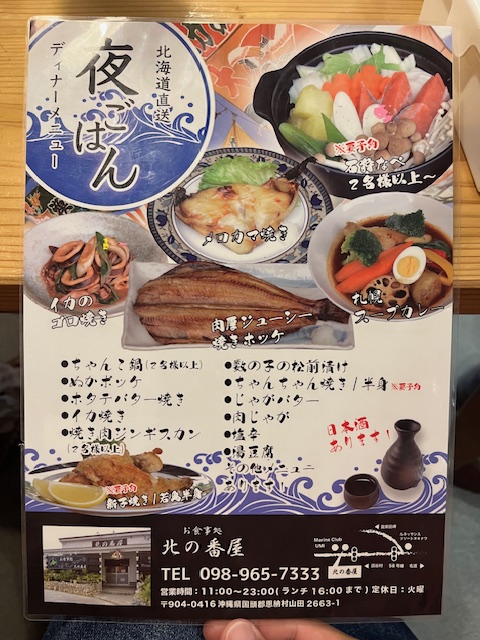 北海道直送
夜ごはん
ディナーメニュー
※要予約
石狩なべ
2名様以上〜
メロカマ焼き
イカの
ゴロ焼き
肉厚ジューシー
焼きホッケ
札幌
スープカレー
●ちゃんこ鍋(2名様以上)
●ぬかホッケ
●ホタテバター焼き
●イカ焼き
●焼き肉ジンギスカン
(2名様以上)
●数の子の松前漬け
●ちゃんちゃん焼き/半身※要予約
●じゃがバター
●肉じゃが
●塩辛
●湯豆腐
その他メニュー
あります!
日本酒
あります!
※要予約
新子焼き/若鳥半身
お食事処
北の番屋
TEL 098-965-7333
営業時間:11:00〜23:00(ランチ16:00まで)定休日:火曜
〒904-0416沖縄県国頭郡恩納村山田2663-1
Marine Club
UMI
ルネッサンス
リゾートオキナワ
北の番屋
58号線
名護